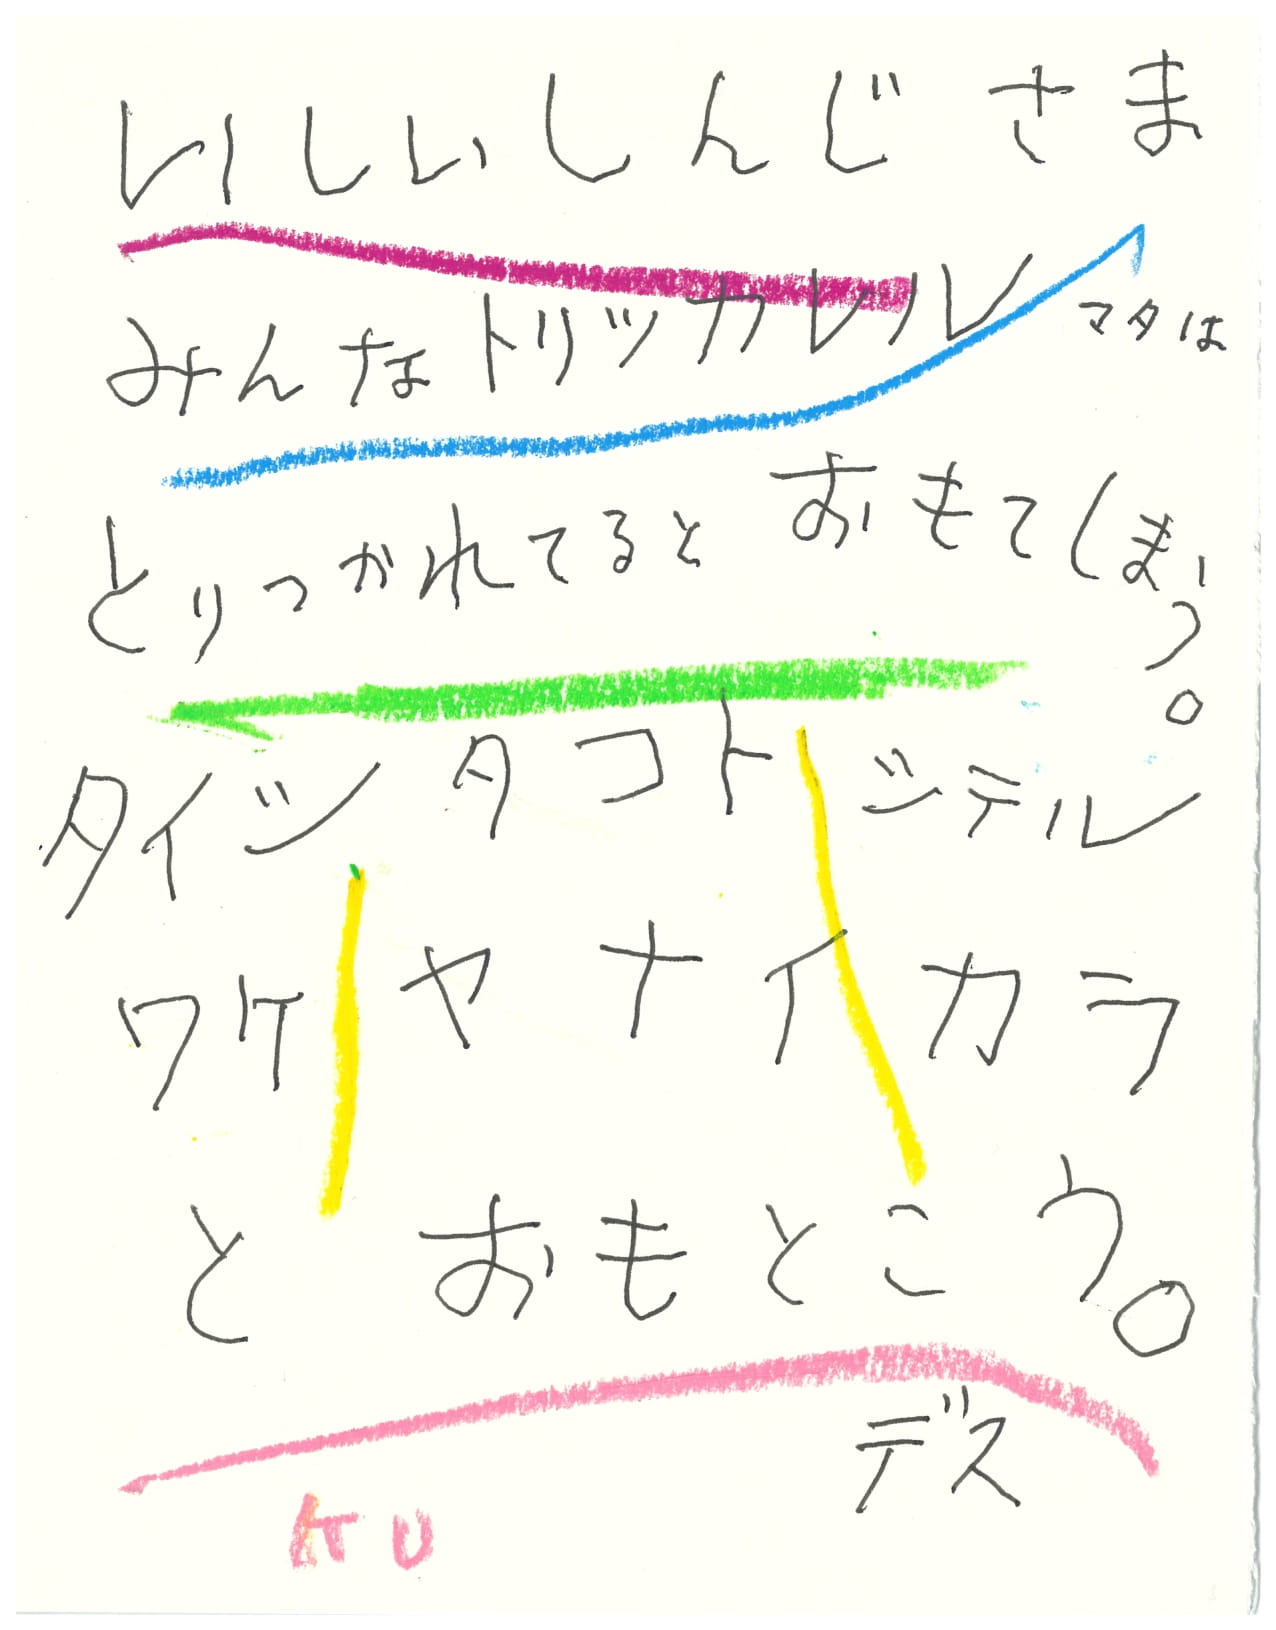 いしいしんじさま
みんなトリツカレル マタは
とりつかれてると おもてしまう。
タイツタコト ジテル
ワケヤナイカラ
と おもとこう。
デス